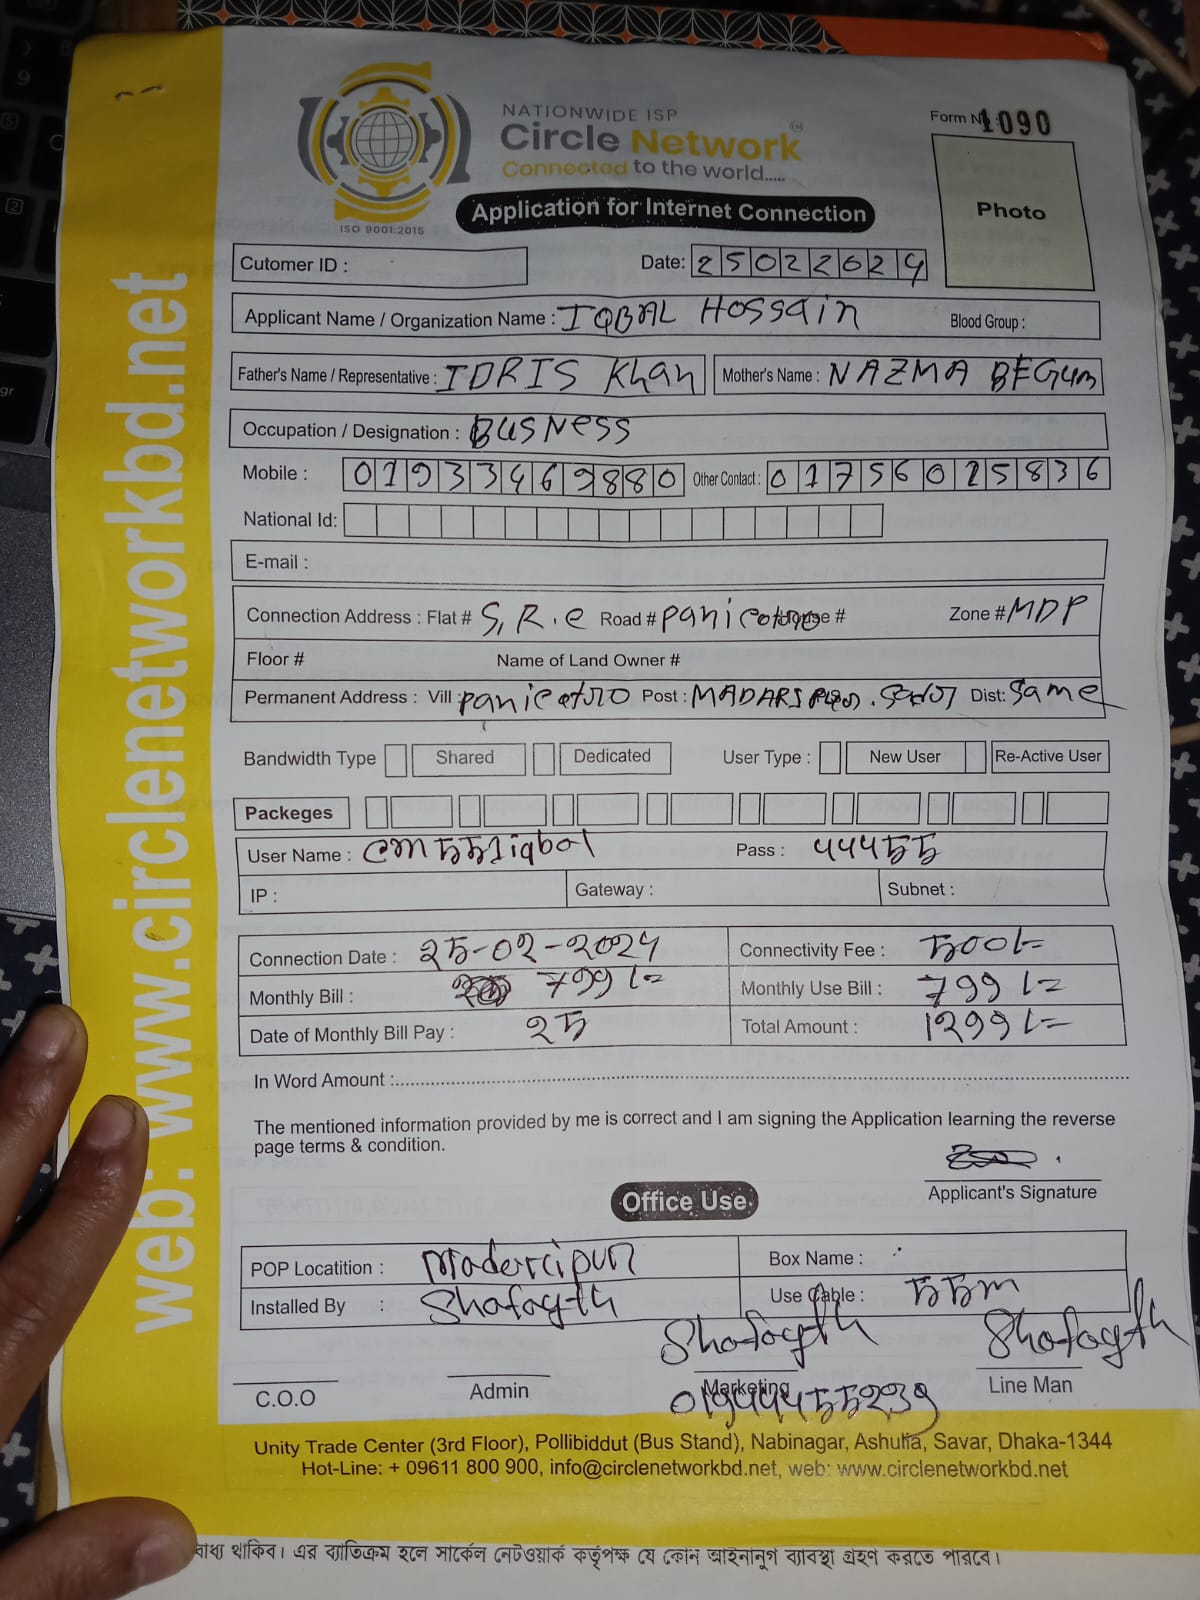 NATIONWIDE ISP
Circle Network TM
Connected to the world.....
ISO 9001:2015
Form No 1090
Photo
Application for Internet Connection
Cutomer ID :
Date: 25022024
Applicant Name / Organization Name : IQBAL HOSSAIN
Blood Group :
Father's Name / Representative : IDRIS Khan
Mother's Name : NAZMA BEGUM
Occupation / Designation : BUSNESS
Mobile : 01933469880 Other Contact : 01756025836
National Id:
E-mail :
Connection Address : Flat # S,R.e Road # House # Zone # MDP
Floor # Name of Land Owner #
Permanent Address : Vill : Post : Dist: Same
Bandwidth Type Shared Dedicated User Type : New User Re-Active User
Packeges
User Name : Pass :
IP : Gateway : Subnet :
Connection Date : 25-02-2024 Connectivity Fee : 500/=
Monthly Bill : 799/= Monthly Use Bill : 799/=
Date of Monthly Bill Pay : 25 Total Amount : 1299/=
In Word Amount :
The mentioned information provided by me is correct and I am signing the Application learning the reverse
page terms & condition.
Applicant's Signature
Office Use
POP Locatition : Madaripur Box Name :
Installed By : Shafayth Use Cable : 55m
Shafayth Shafayth
C.O.O Admin Marketing Line Man
Unity Trade Center (3rd Floor), Pollibiddut (Bus Stand), Nabinagar, Ashulia, Savar, Dhaka-1344
Hot-Line: + 09611 800 900, info@circlenetworkbd.net, web: www.circlenetworkbd.net
বাধ্য থাকিব। এর ব্যতিক্রম হলে সার্কেল নেটওয়ার্ক কর্তৃপক্ষ যে কোন আইনানুগ ব্যবস্থা গ্রহণ করতে পারবে।
web: www.circlenetworkbd.net